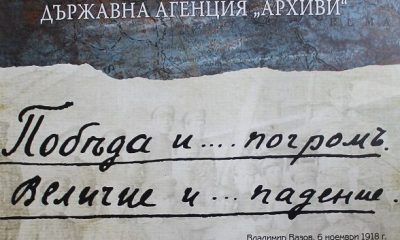 ДЪРЖАВНА АГЕНЦИЯ „АРХИВИ“
Побѣда и .... погромъ.
Величие и .... падение.
Владимир Вазов, 6 ноември 1918 г.